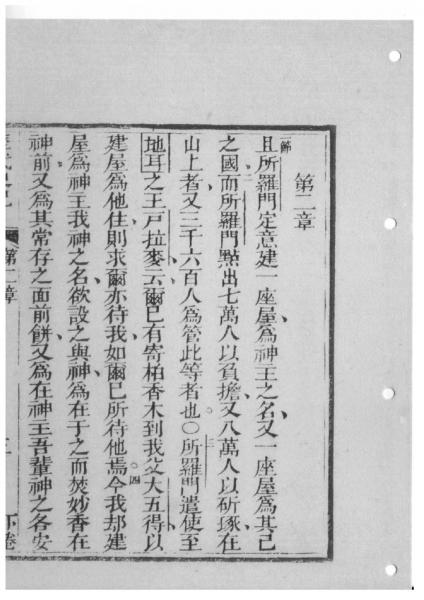 第二章
一節且所羅門定意建一座屋為神王之名又一座屋為其己
之國二而所羅門點出七萬人以負擔又八萬人以斫琢在
山上者又三千六百人為管此等者也○三所羅門遣使至
地耳之王戶拉麥云爾已有寄柏香木到我父大五得以
建屋為他住則求爾亦待我如爾已所待他焉四今我却建
屋為神王我神之名欲設之與神為在于之而焚妙香在
神前又為其常存之面前餅又為在神王吾輩神之各安
第二章 三 下卷